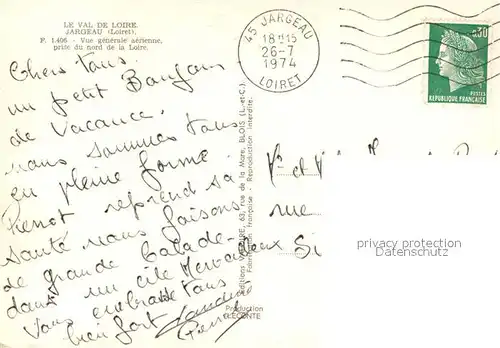 LE VAL DE LOIRE.
JARGEAU (Loiret).
P. 1.406 - Vue générale aérienne,
prise du nord de la Loire.
45 JARGEAU
18H15
26-7
1974
LOIRET
0,30
POSTES
REPUBLIQUE FRANÇAISE
Chers Tous.
un petit Bonjour
de Vacance.
nous sommes tous
en pleine forme.
Pierrot reprend sa
Santé nous faisons
de grande Balade
dans un site Merveilleux
Vous embrasse tous
bien fort
rue
Si
63, rue de la Mare, BLOIS (L.-et-C.)
Fabrication française - Reproduction interdite.
Production
LECONTE
privacy protection
Datenschutz